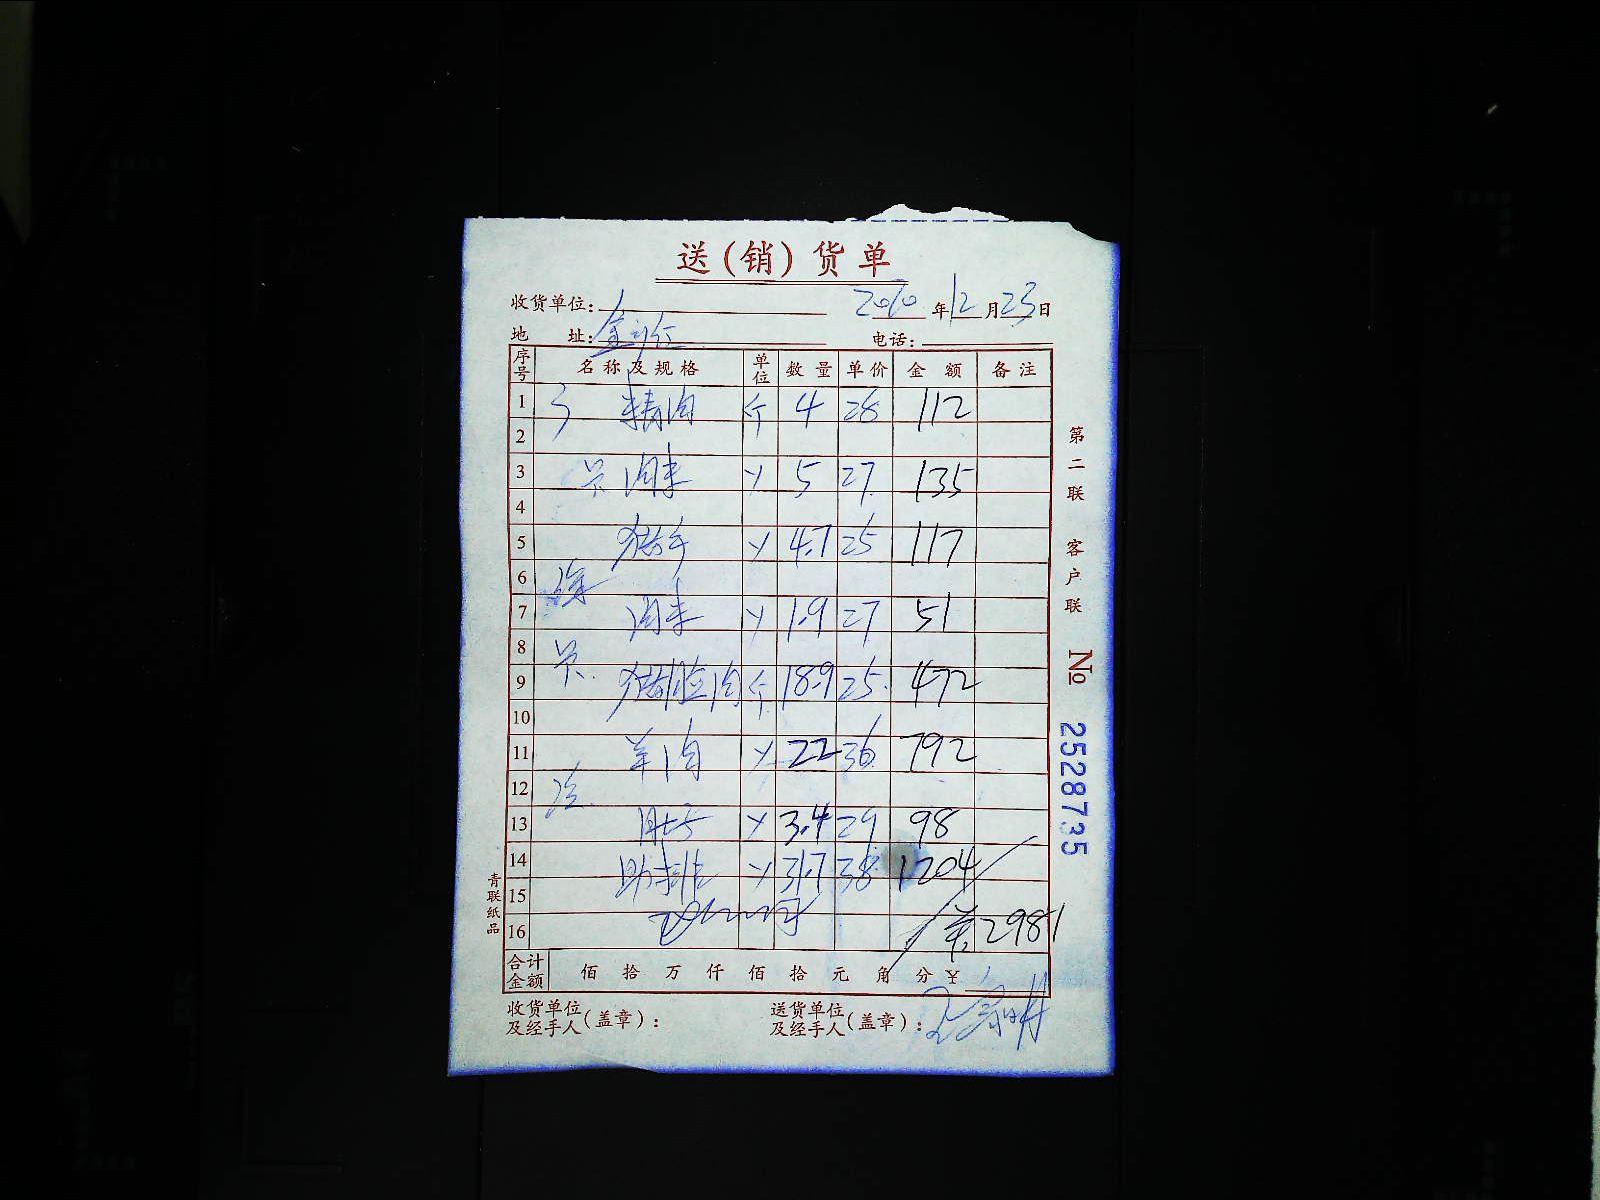 送（销）货单
收货单位： 2020 年 12 月 23 日
地 址： 电话：
序号 名称及规格 单位 数量 单价 金额 备注
1 精肉 斤 4 28 112
2
3 肉末 〃 5 27 135
4
5 猪手 〃 4.7 25 117
6
7 肉末 〃 1.9 27 51
8
9 猪脸肉 斤 18.9 25 472
10
11 羊肉 〃 22 36 792
12
13 〃 3.4 29 98
14 肋排 〃 31.7 38 1204
15
16 2981
合计金额 佰 拾 万 仟 佰 拾 元 角 分 ￥
收货单位及经手人（盖章）：
送货单位及经手人（盖章）：
第二联 客户联
No 2528735
青联纸品